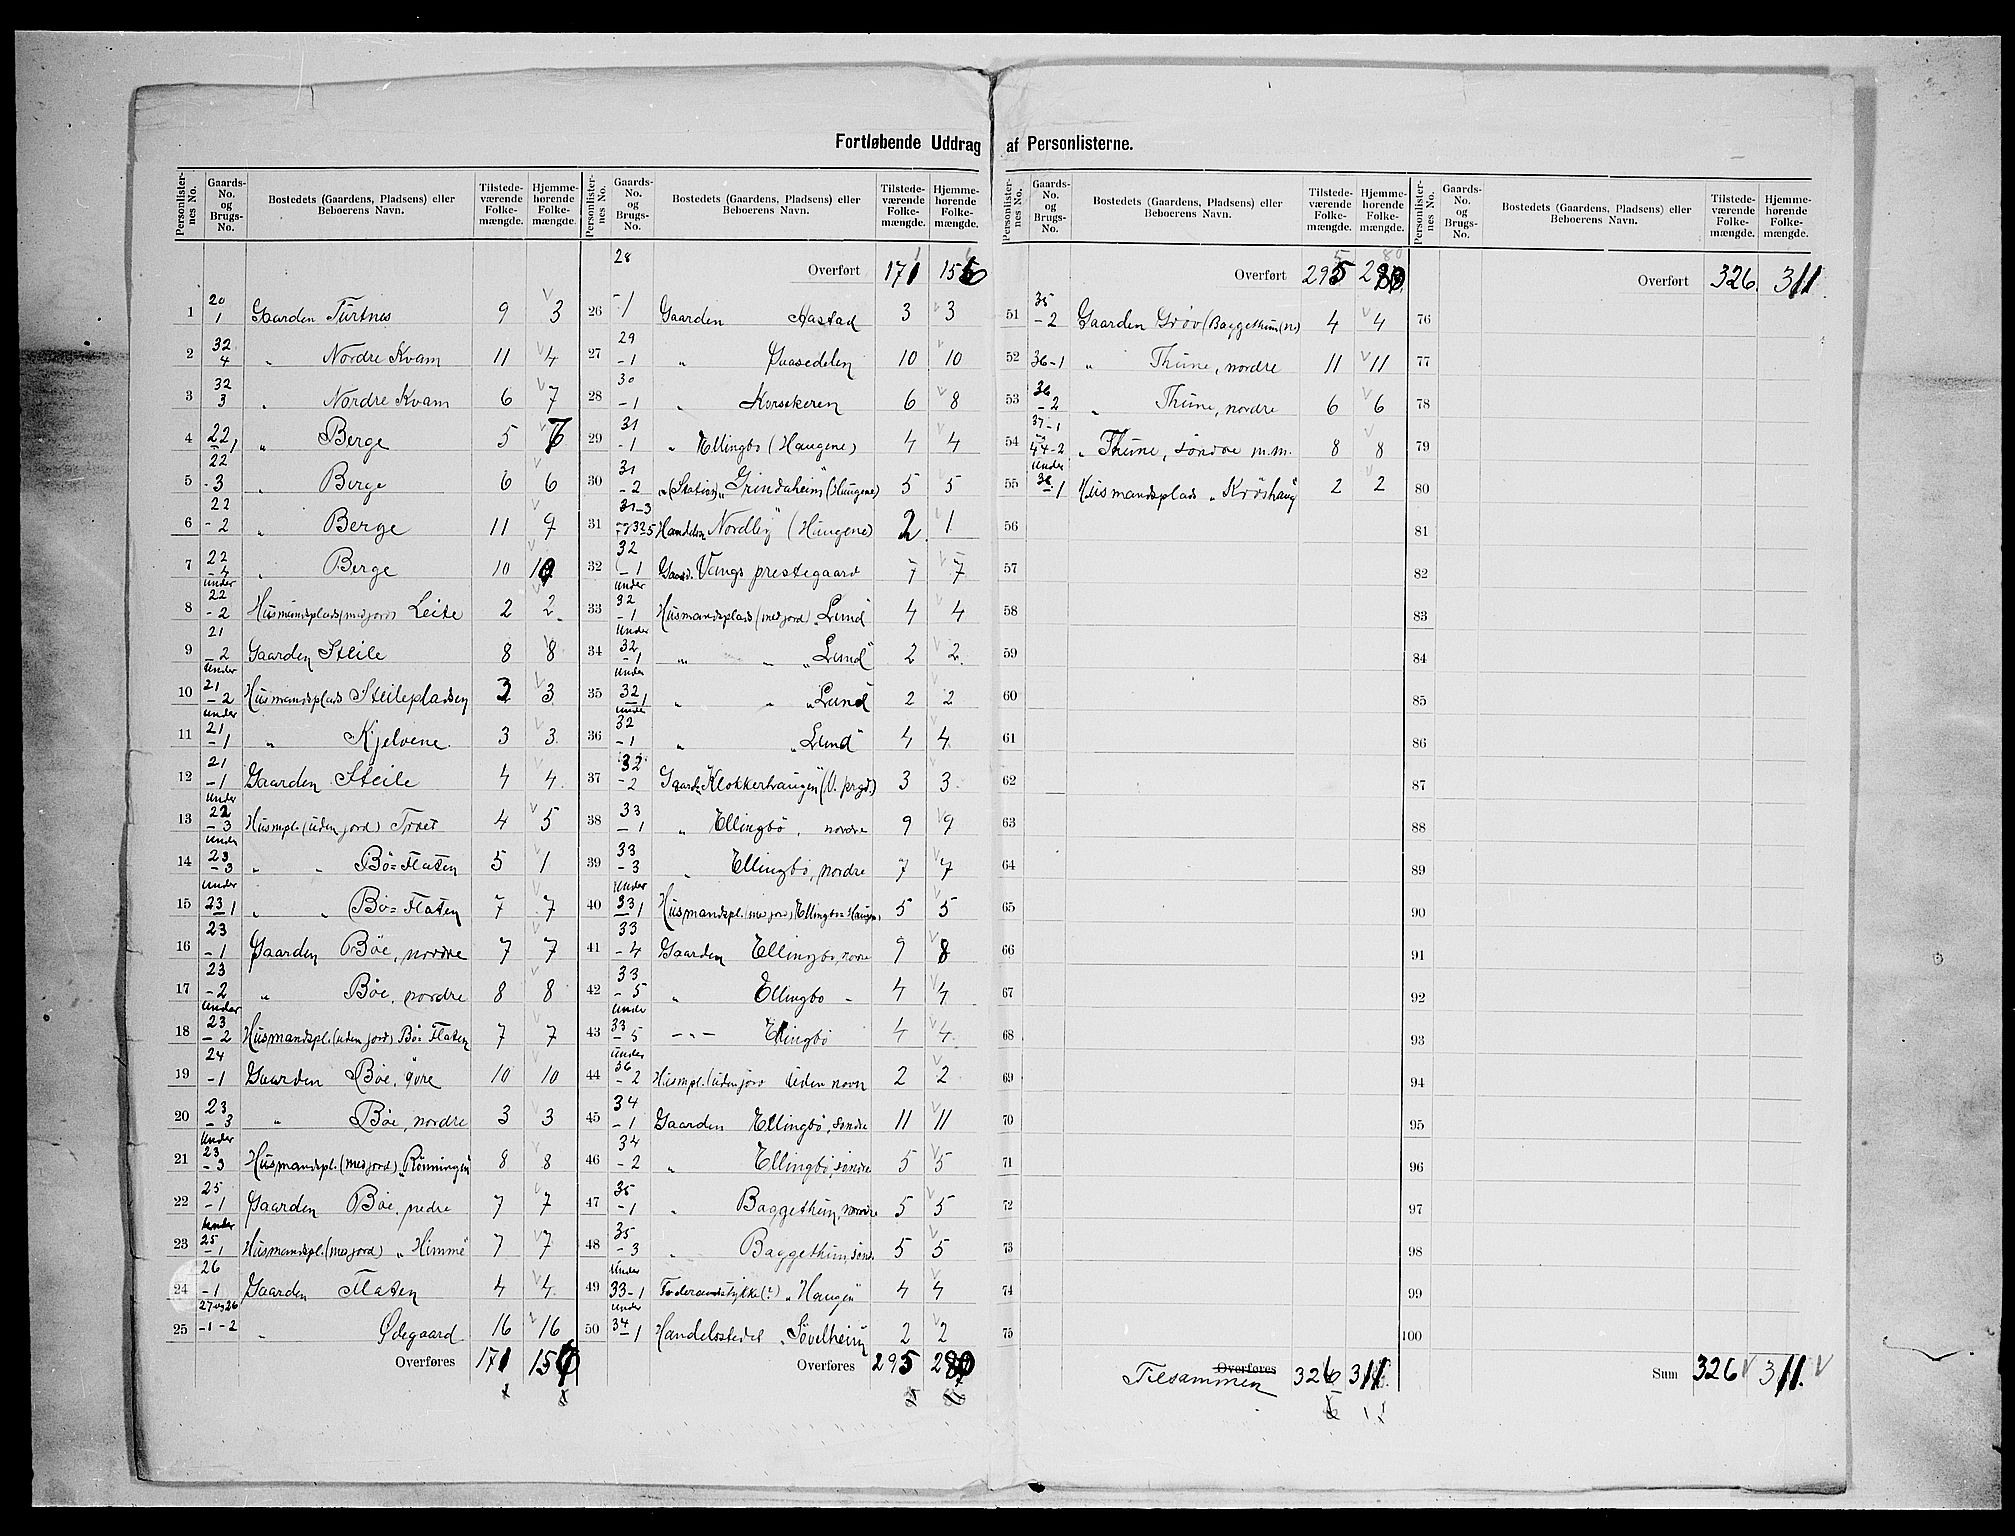 Fortløbende Uddrag af Personlisterne.
Personlister-nes No. | Gaards-No. og Brugs-No. | Bostedets (Gaardens, Pladsens) eller Beboerens Navn. | Tilstede-værende Folke-mængde. | Hjemme-hørende Folke-mængde.
1 | 20 1 | Gaarden Turtnes | 9 | 3
2 | 32 4 | " Nordre Kvam | 11 | 4
3 | 32 3 | " Nordre Kvam | 6 | 7
4 | 22 1 | " Berge | 5
5 | 22 - 3 | " Berge | 6 | 6
6 | 22 - 2 | " Berge | 11 | 9
7 | 22 - 4 | " Berge | 10 | 10
8 | under 22 - 2 | Husmandsplads (med jord) Leite | 2 | 2
9 | 21 - 2 | Gaarden Steile | 8 | 8
10 | under 21 - 2 | Husmandsplads Steilepladsen | 3 | 3
11 | under 21 - 1 | " Kjelvene | 3 | 3
12 | 21 - 1 | Gaarden Steile | 4 | 4
13 | under 22 - 3 | Husmpl. (uden jord) Træt | 4 | 5
14 | under 23 - 3 | " " Bö=Flaten | 5 | 1
15 | under 23 1 | " " Bö=Flaten | 7 | 7
16 | 23 - 1 | Gaarden Böe, nordre | 7 | 7
17 | 23 - 2 | " Böe, nordre | 8 | 8
18 | under 23 - 2 | Husmandspl. (uden jord) Bö=Flaten | 7 | 7
19 | 24 - 1 | Gaarden Böe, övre | 10 | 10
20 | 23 - 3 | " Böe, nordre | 3 | 3
21 | under 23 - 3 | Husmandspl. (med jord) „Rönningen" | 8 | 8
22 | 25 - 1 | Gaarden Böe, nedre | 7 | 7
23 | under 25 - 1 | Husmandspl. (med jord) „Himme" | 7 | 7
24 | 26 - 1 | Gaarden Flaten | 4 | 4
25 | 27 og 26 - 1 - 2 | " Ødegaard | 16 | 16
Overføres 171
Personlister-nes No. | Gaards-No. og Brugs-No. | Bostedets (Gaardens, Pladsens) eller Beboerens Navn. | Tilstede-værende Folke-mængde. | Hjemme-hørende Folke-mængde.
28 | Overført | 171 | 156
26 | - 1 | Gaarden Hastad | 3 | 3
27 | 29 - 1 | " | 10 | 10
28 | 30 - 1 | " | 6 | 8
29 | 31 - 1 | " Ellingbö (Haugene) | 4 | 4
30 | 31 - 2 | " (Station) „Grindaheim" (Haugene) | 5 | 5
31 | 31-3 | Handelsn „Nordly" (Haugene) | 2 | 1
32 | 32 - 1 | Gaard. Vangs prestegaard | 7 | 7
33 | under 32 - 1 | Husmandsplads (med jord) „Lund" | 4 | 4
34 | under 32 - 1 | " " „Lund" | 2 | 2
35 | under 32 1 | " " „Lund" | 2 | 2
36 | under 32 - 1 | " „Lund" | 4 | 4
37 | 32 - 2 | Gaarden Klokkerhaugen (V. prgd.) | 3 | 3
38 | 33 - 1 | " Ellingbö, nordre | 9 | 9
39 | 33 - 3 | " Ellingbö, nordre | 7 | 7
40 | under 33 1 | Husmandspl. (med jord) Ellingbö=Haugen | 5 | 5
41 | 33 - 4 | Gaarden Ellingbö, nordre | 9 | 8
42 | 33 - 5 | " Ellingbö - | 4 | 4
43 | under 33 - 5 | - " - Ellingbö | 4 | 4
44 | under 36 - 2 | Husmpl. (uden jord uden navn | 2 | 2
45 | 34 - 1 | Gaarden Ellingbö, söndre | 11 | 11
46 | 34 - 2 | " Ellingbö, söndre | 5 | 5
47 | 35 - 1 | " Baggethun, nordre | 5 | 5
48 | 35 - 3 | " Baggethun, sönd. | 5 | 5
49 | under 33 - 1 | Föderaadsstykke (?) „Haugen" | 4 | 4
50 | under 34 - 1 | Handelsstedet „Sövelheim" | 2 | 2
Overføres 295 280
Personlister-nes No. | Gaards-No. og Brugs-No. | Bostedets (Gaardens, Pladsens) eller Beboerens Navn. | Tilstede-værende Folke-mængde. | Hjemme-hørende Folke-mængde.
Overført | 295 | 280
51 | 35 - 2 | Gaarden Gröv (Baggethun (n)) | 4 | 4
52 | 36-1 | " Thune, nordre | 11 | 11
53 | 36 - 2 | " Thune, nordre | 6 | 6
54 | 37-1 44-2 | " Thune, söndre m.m. | 8 | 8
55 | under 36 1 | Husmandsplads „Kröshaug" | 2 | 2
56
57
58
59
60
61
62
63
64
65
66
67
68
69
70
71
72
73
74
75
Overføres
Tilsammen 326 311
Personlister-nes No. | Gaards-No. og Brugs-No. | Bostedets (Gaardens, Pladsens) eller Beboerens Navn. | Tilstede-værende Folke-mængde. | Hjemme-hørende Folke-mængde.
Overført | 326 | 311
76
77
78
79
80
81
82
83
84
85
86
87
88
89
90
91
92
93
94
95
96
97
98
99
100
Sum 326 311.